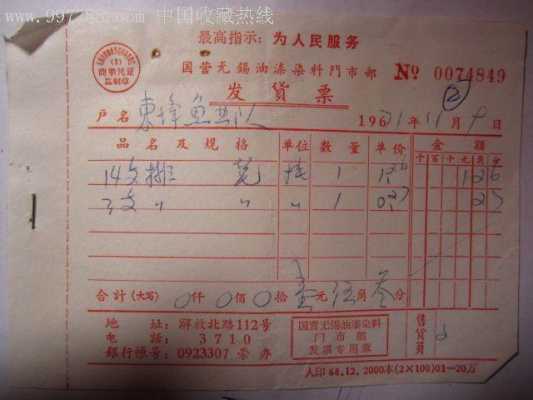 www.997788.com 中国收藏热线
最高指示：为人民服务
(1)
商事凭证
监制章
国营无锡油漆染料門市部 № 0074849
发货票 ②
戶名 196 年11月9日
品名及规格 单位 数量 单价 金額
千 百 十 元 角 分
14支排笔 1 1 2 6
3支 〃 〃 〃 1 2 7
合計(大写) 0仟0佰0拾壹元伍角叁分
地址：解放北路112号
电話：3710
銀行帳号：0923307 崇办
国营无锡油漆染料
門市部
发票专用章
售貨員
人印 68.12. 2000本(2×100)01—20万